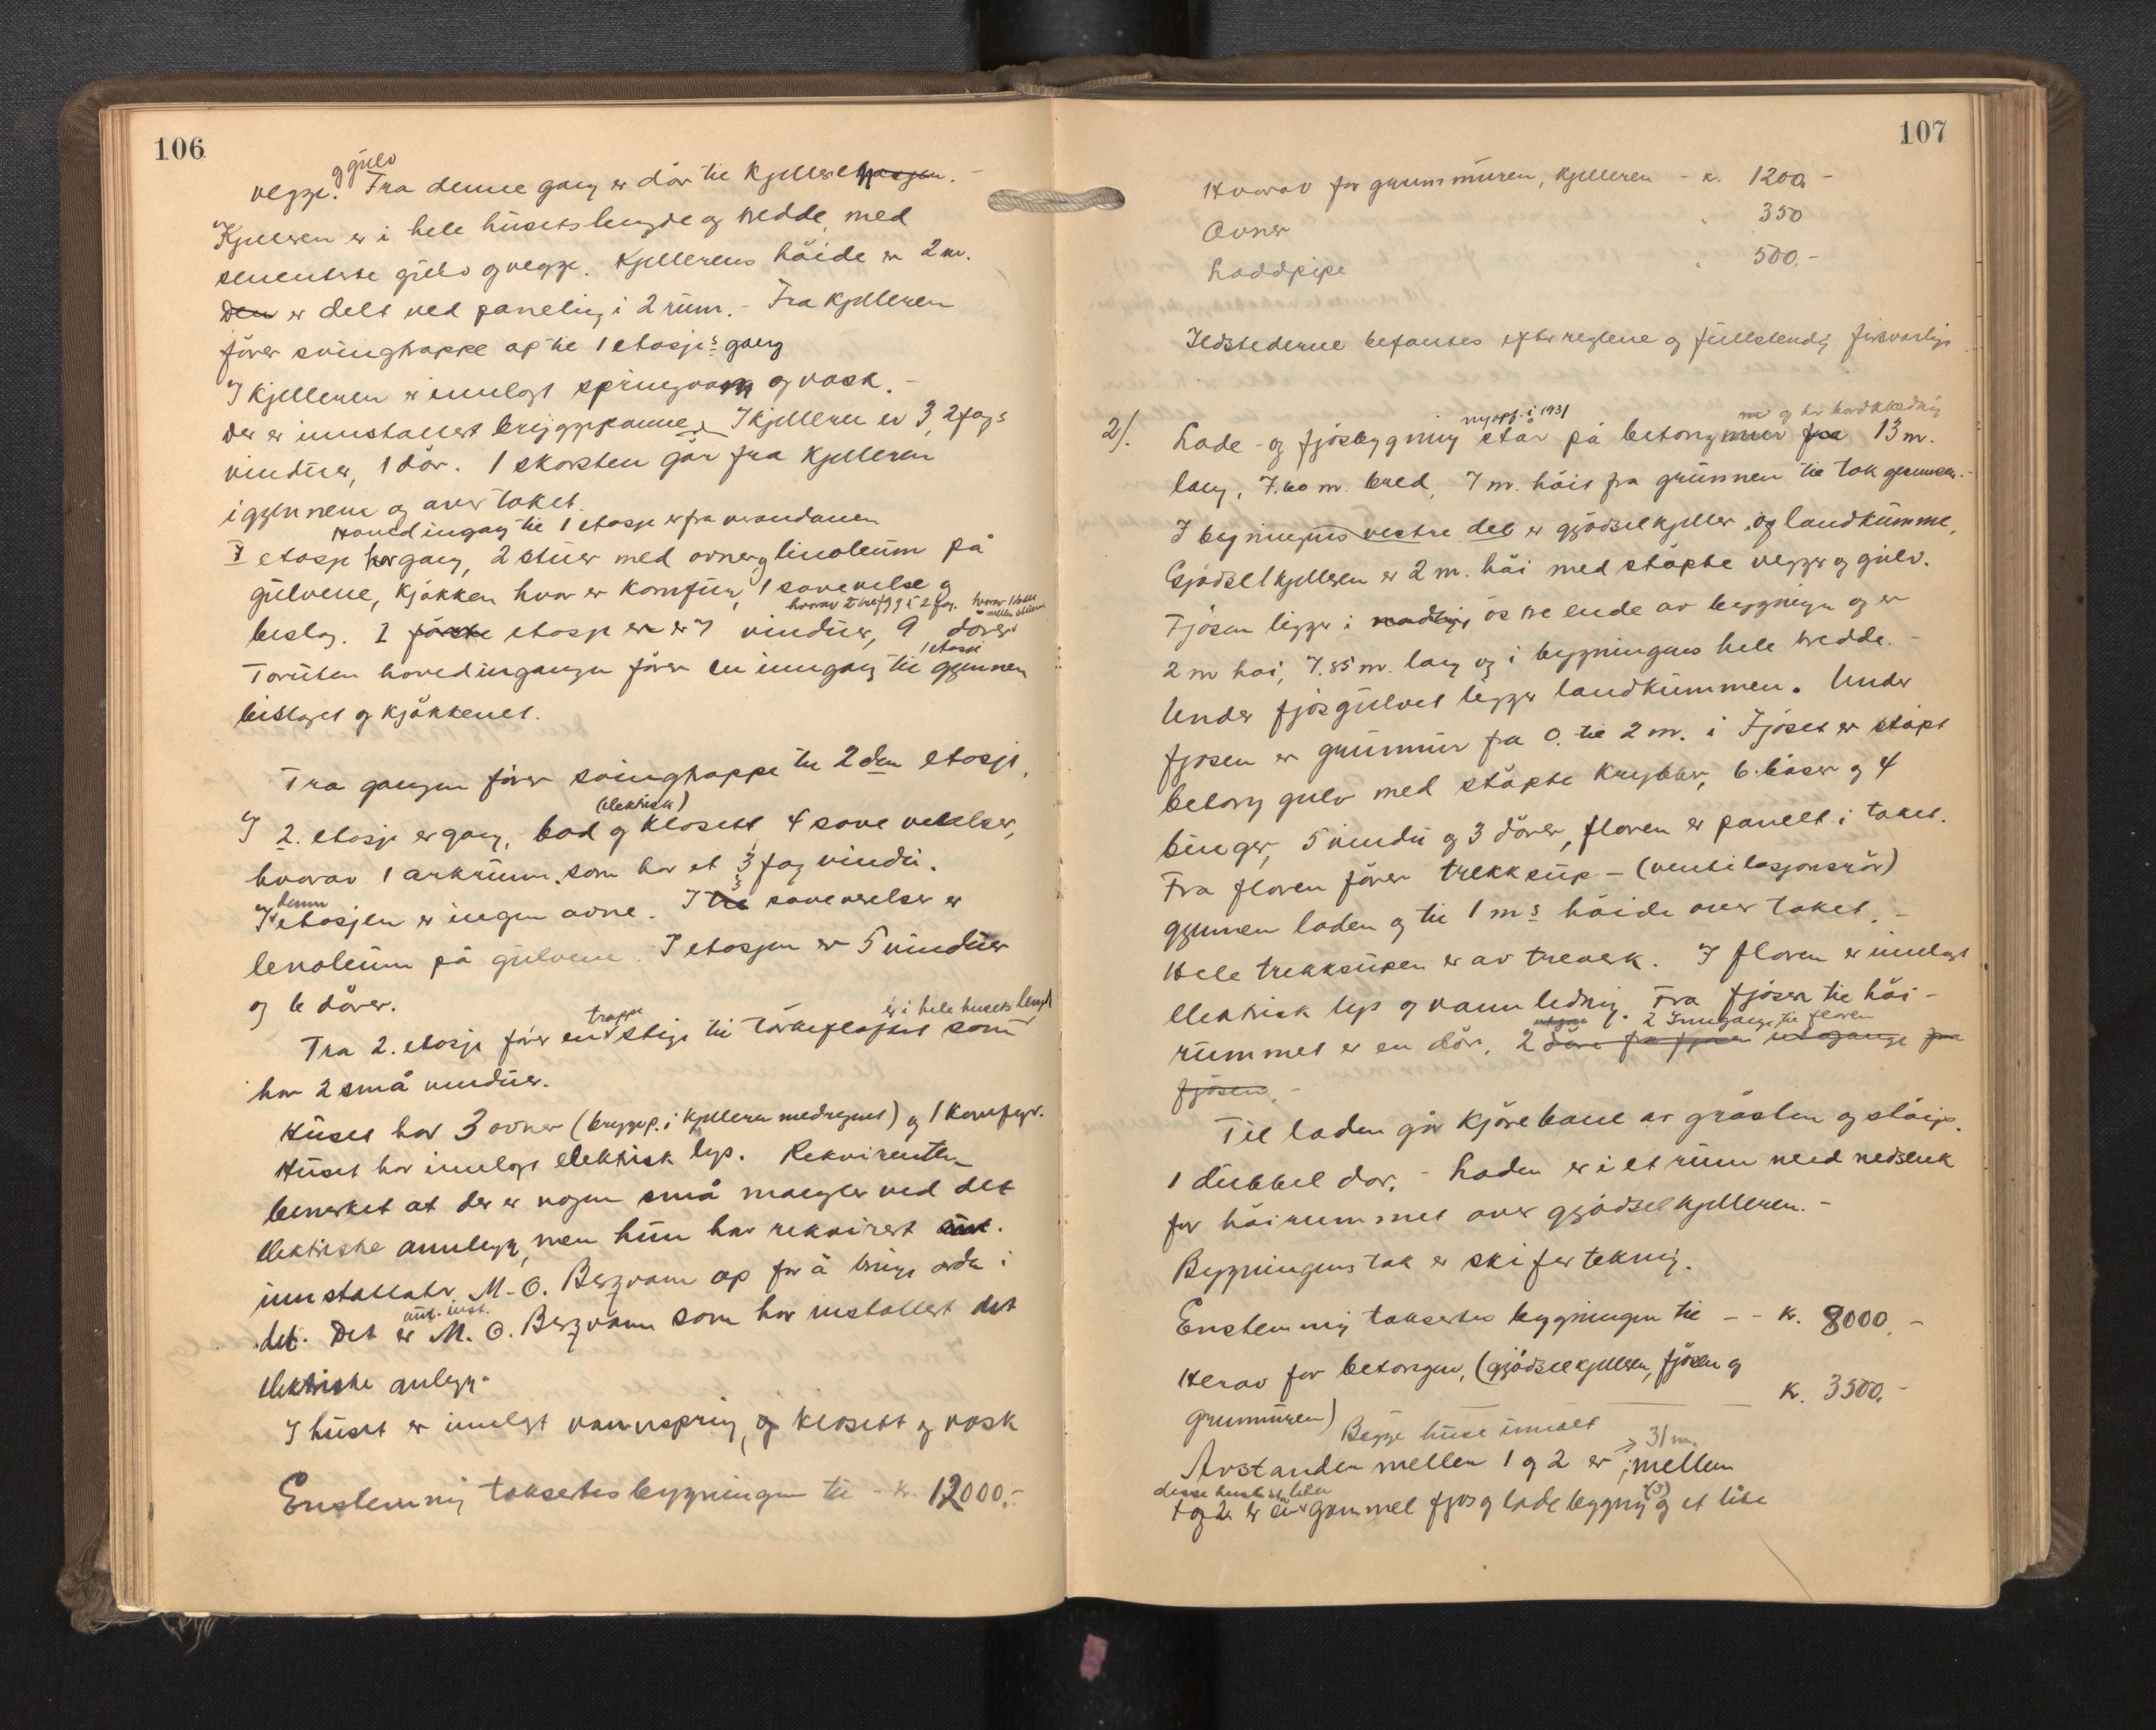 106
g gulv
vegge. Fra denne gang er dör til Kjelleretasjen. -
Kjelleren er i hele husets lengde og bredde, med
sementerte gulv og vegge. Kjellerens höide er 2 m.
Den er delt ved paneling i 2 rum. - Fra kjelleren
förer svingtrappe op til 1 etasjes gang
I kjelleren er innlagt springvann og vask. -
Der er innstallert bryggpanne. I kjelleren er 3, 2 fags
vinduer, 1 dör. 1 skorsten går fra kjelleren
igjennem og over taket.
Hovedingang til 1 etasje er fra verandaen
I etasje har gang, 2 stuer med ovner og linoleum på
gulvene, kjökken hvor er komfur, 1 soveværelse og
hvorav 2 fag
beslag. I förste etasje er 7 vinduer, 9 dörer
mellem stuene
1 etasje
Foruten hovedingangen förer en inngang til gjennem
bislaget og kjökkenet.
Fra gangen förer svingtrappe til 2den etasje.
(elektrisk)
I 2. etasje er gang, bad og klosett, 4 soveværelser,
hvorav 1 arkrum, som har et 3 fag vindu.
denne 3
I etasjen er ingen ovne. I tre soveværelser er
lenoleum på gulvene. I etasjen er 5 vinduer
og 6 dörer.
trappe er i hele husets lengd
Fra 2. etasje förer en stige til törkeloftet som
har 2 små vinduer.
Huset har 3 ovner (bryggep. i kjelleren medregnet) og 1 komfyr.
Huset har innlagt elektrisk lys. Rekvirenten
bemerket at der er nogen små mangler ved det
elektriske annlegg, men hun har rekvirert aut.
innstallatör M. O. Bergvam op for å bringe orden i
aut. inst.
det. Det er M. O. Bergvam som har installert det
elektriske anlegg.
I huset er innlagt vannspring, og klosett og vask
Enstemmig taksertes bygningen til - kr. 12000.-
107
Hvorav for grunnmuren, kjelleren - k. 1200 -
Ovner " 350
Loddpipe " 500.-
Ildstederne befantes efter reglene og fullstendig forsvarlige
nyopf. i 1931
og har bordklædning
2/. Lade - og fjösbygning står på betongmur fra 13 m.
lang, 7.60 m. bred, 7 m. höit fra grunnen til tak gesimsen.-
I bygningens vestre del er gjödselkjeller og landkumme,
Gjödselkjelleren er 2 m. höi med stöpte vegger og gulv.
Fjösen ligger i östre ende av bygningen og er
2 m höi, 7.85 m. lang og i bygningens hele bredde. -
Under fjösgulvet ligger landkummen. Under
fjosen er grunnmur fra 0. til 2 m. i Fjöset er stöpt
betong gulv med stöpte Krybber, 6. båser og 4
binger, 5 vindu og 3 dörer, floren er panelt i taket.
Fra floren förer trekksup - (ventilasjonsrör)
gjennem loden og til 1 ms höide over taket. -
Hele trekksupen er av treverk. I floren er innlagt
elektrisk lys og vannledning. Fra fjösen til höi-
2 Inngange til floren
rummet er en dör. 2 döre fra fjösen utgange fra
fjösen. -
Til laden går kjörebane av gråsten og stöip.
1 dubbel dör. - Laden er i et rum med nedsenk
for höirummet over gjödselkjelleren. -
Bygningens tak er skifertekning.
Enstemmig taksertes bygningen til - - kr. 8000. -
Herav for betongen, (gjödselkjelleren, fjösen og
grunmuren) kr. 3500. -
Begge huse innmålt
31 m.
Avstanden mellem 1 og 2 er ; mellem
desse
(3)
1 og 2 er en gammel fjos og lade bygning og et lite